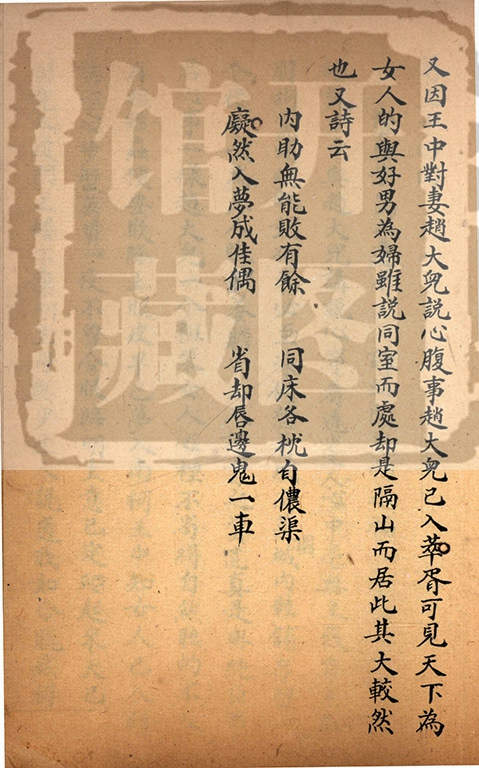 又因王中對妻趙大兒說心腹事趙大兒已入華胥可見天下為
女人的與好男為婦雖說同室而處却是隔山而居此其大較然
也又詩云
內助無能敗有餘 同床各枕自儂渠
癡然入夢成佳偶 省却唇邊鬼一車